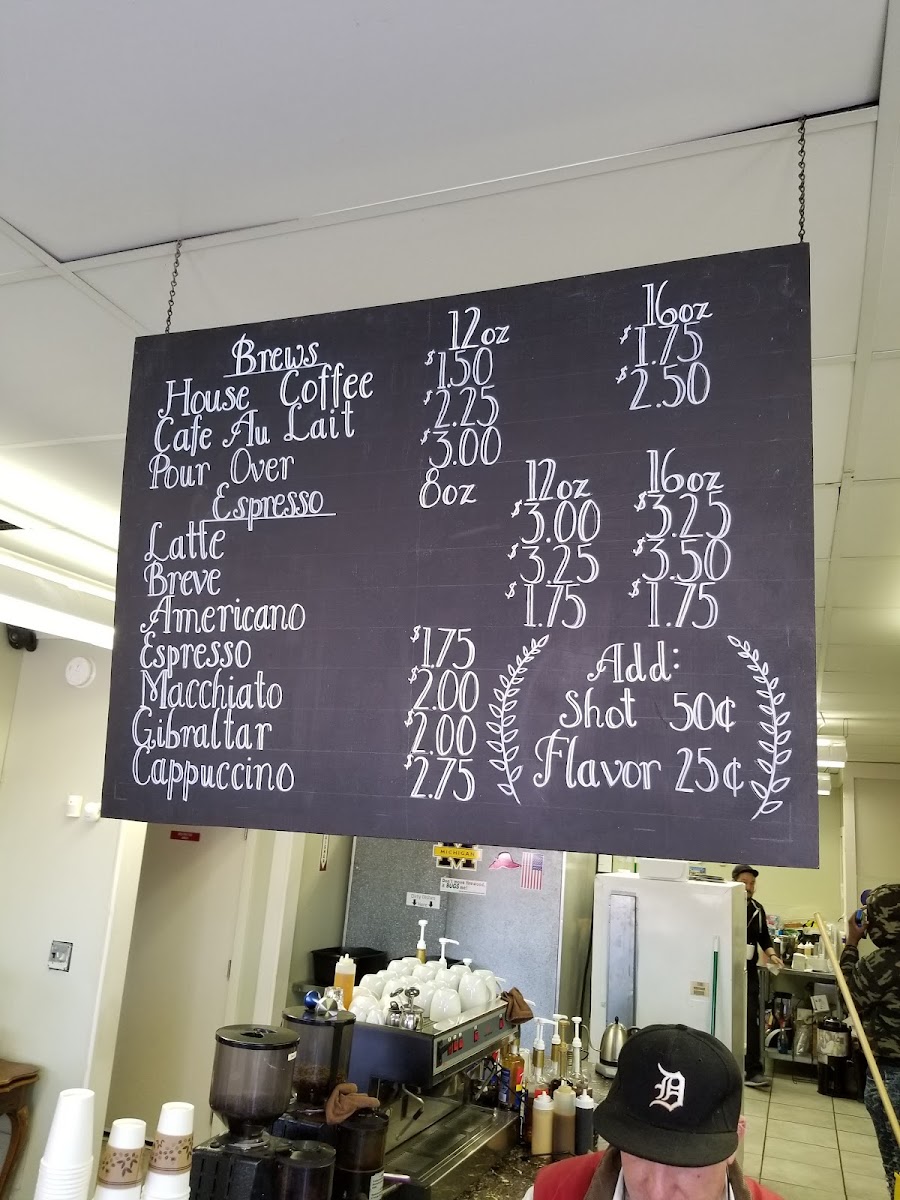 Brews 12oz 16oz
House Coffee $1.50 $1.75
Cafe Au Lait $2.25 $2.50
Pour Over $3.00
Espresso 8oz 12oz 16oz
Latte $3.00 $3.25
Breve $3.25 $3.50
Americano $1.75 $1.75
Espresso $1.75
Macchiato $2.00
Gibraltar $2.00
Cappuccino $2.75
Add:
Shot 50¢
Flavor 25¢
M
MICHIGAN
D